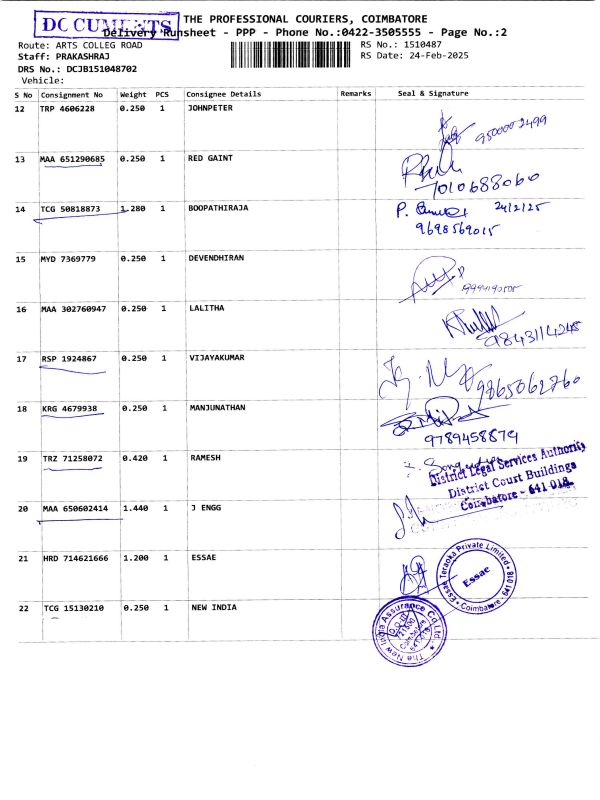 DOCUMENTS
THE PROFESSIONAL COURIERS, COIMBATORE
Delivery Runsheet - PPP - Phone No.:0422-3505555 - Page No.:2
Route: ARTS COLLEG ROAD
RS No.: 1510487
Staff: PRAKASHRAJ
RS Date: 24-Feb-2025
DRS No.: DCJB151048702
Vehicle:
S No Consignment No Weight PCS Consignee Details Remarks Seal & Signature
12 TRP 4606228 0.250 1 JOHNPETER
9500002499
13 MAA 651290685 0.250 1 RED GAINT
7010688060
14 TCG 50818873 1.280 1 BOOPATHIRAJA P. 24/2/25
9698569015
15 MYD 7369779 0.250 1 DEVENDHIRAN
16 MAA 302760947 0.250 1 LALITHA
9843114248
17 RSP 1924867 0.250 1 VIJAYAKUMAR
9865062760
18 KRG 4679938 0.250 1 MANJUNATHAN
9789458879
19 TRZ 71258072 0.420 1 RAMESH
District Legal Services Authority
District Court Buildings
Coimbatore - 641 018.
20 MAA 650602414 1.440 1 J ENGG
21 HRD 714621666 1.200 1 ESSAE
Essae Teraoka Private Limited
Essae
Coimbatore - 641 018
22 TCG 15130210 0.250 1 NEW INDIA
The New India Assurance Co. Ltd.